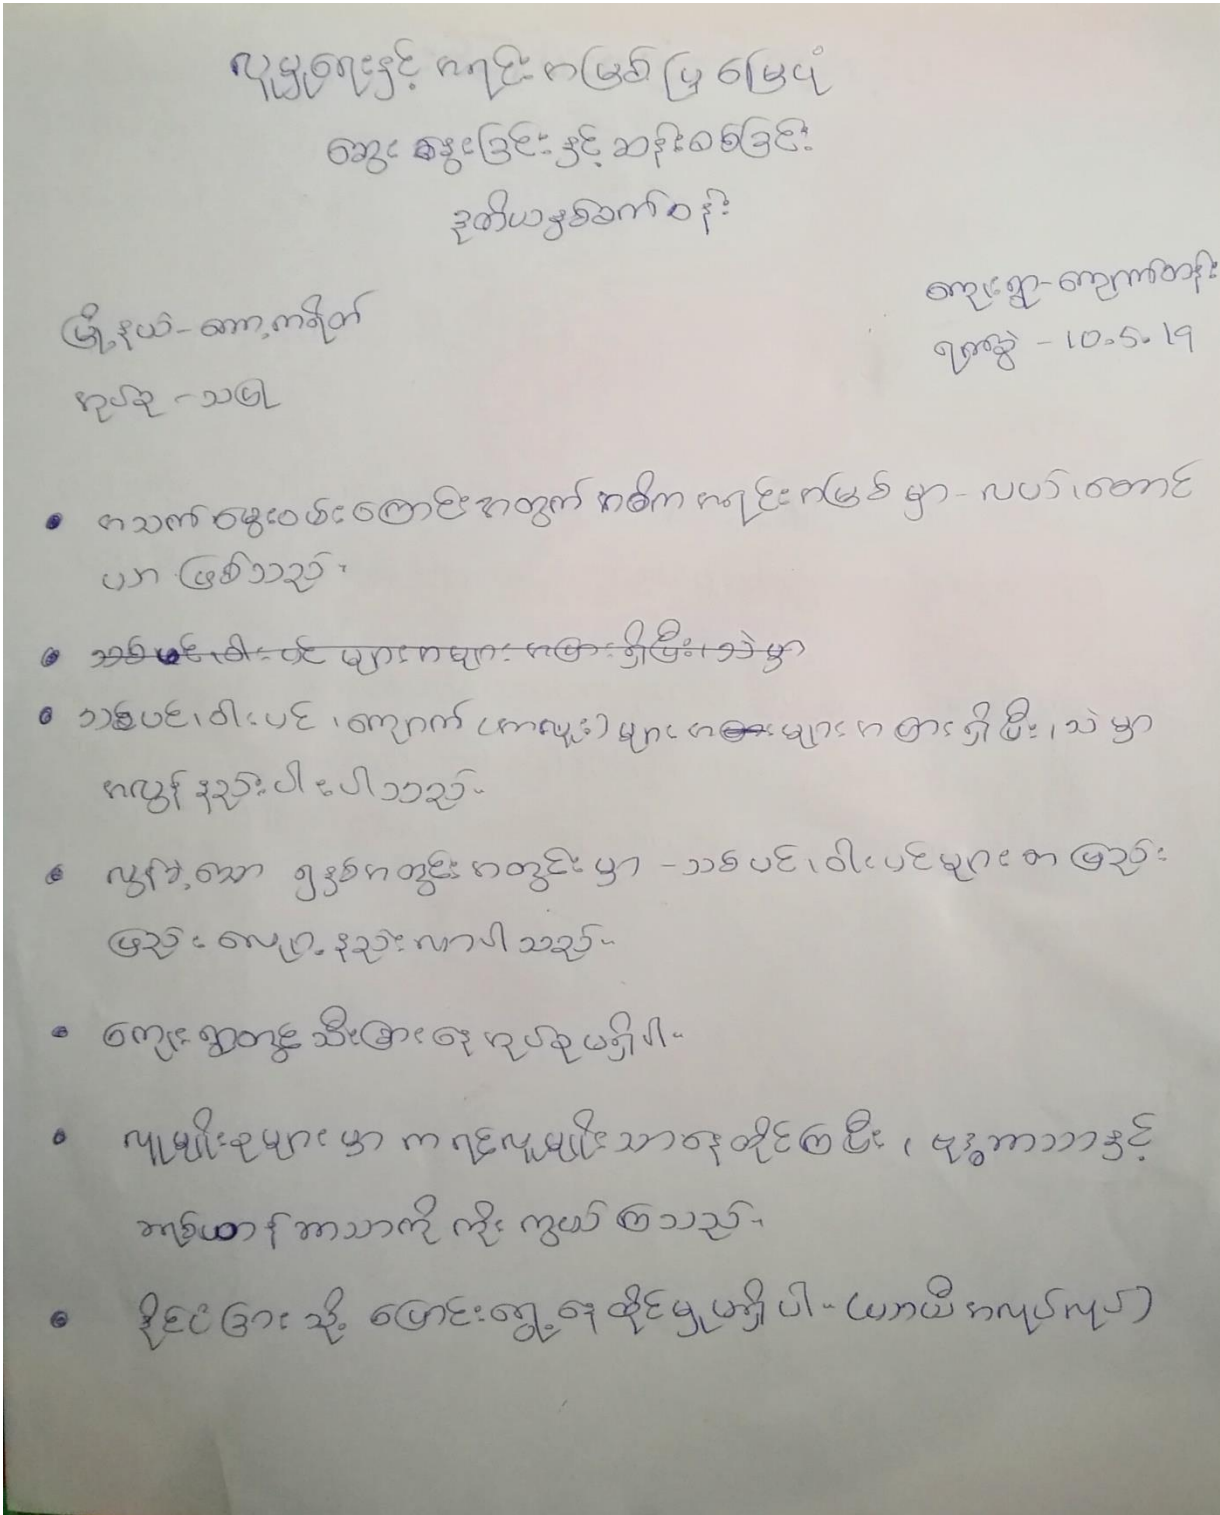 လူမှုရေးနှင့် အရင်းအမြစ်ပြ မြေပုံ
ဆွေးနွေးခြင်းနှင့် ဆန်းစစ်ခြင်း
ဒုတိယနှစ်ဝက်ဝန်း
ကျေးရွာ - ကျောက်တန်း
မြို့နယ် - ကော့ကရိတ်
ရက်စွဲ - 10.5.19
အုပ်စု - သမြို
• အသက်မွေးဝမ်းကြောင်းအတွက် အဓိက အရင်းအမြစ်မှာ - လယ်၊ တောင်
ယာ ဖြစ်သည်။
• သစ်ပင်၊ ဝါးပင် များ အများ အပြားရှိပြီး၊ သဲမှာ
• သစ်ပင်၊ ဝါးပင်၊ ကျောက် (ကာလူး) များ အများအပြားရှိပြီး၊ သဲမှာ
အလွန်နည်းပါးပါသည်။
• လွန်ခဲ့သော ၅နှစ်အတွင်း အတွင်းမှာ - သစ်ပင်၊ ဝါးပင်များ တဖြည်း
ဖြည်း လျော့နည်းလာပါသည်။
• ကျေးရွာတွင် သီးခြားနေ အုပ်စုမရှိပါ။
• လူမျိုးစုများမှာ ကရင်လူမျိုးသာ နေထိုင်ကြပြီး၊ ဗုဒ္ဓဘာသာနှင့်
ခရစ်ယာန်ဘာသာကို ကိုးကွယ်ကြသည်။
• နိုင်ငံခြားသို့ ပြောင်းရွှေ့နေထိုင်မှုမရှိပါ။ (ယာယီအလုပ်လုပ်)